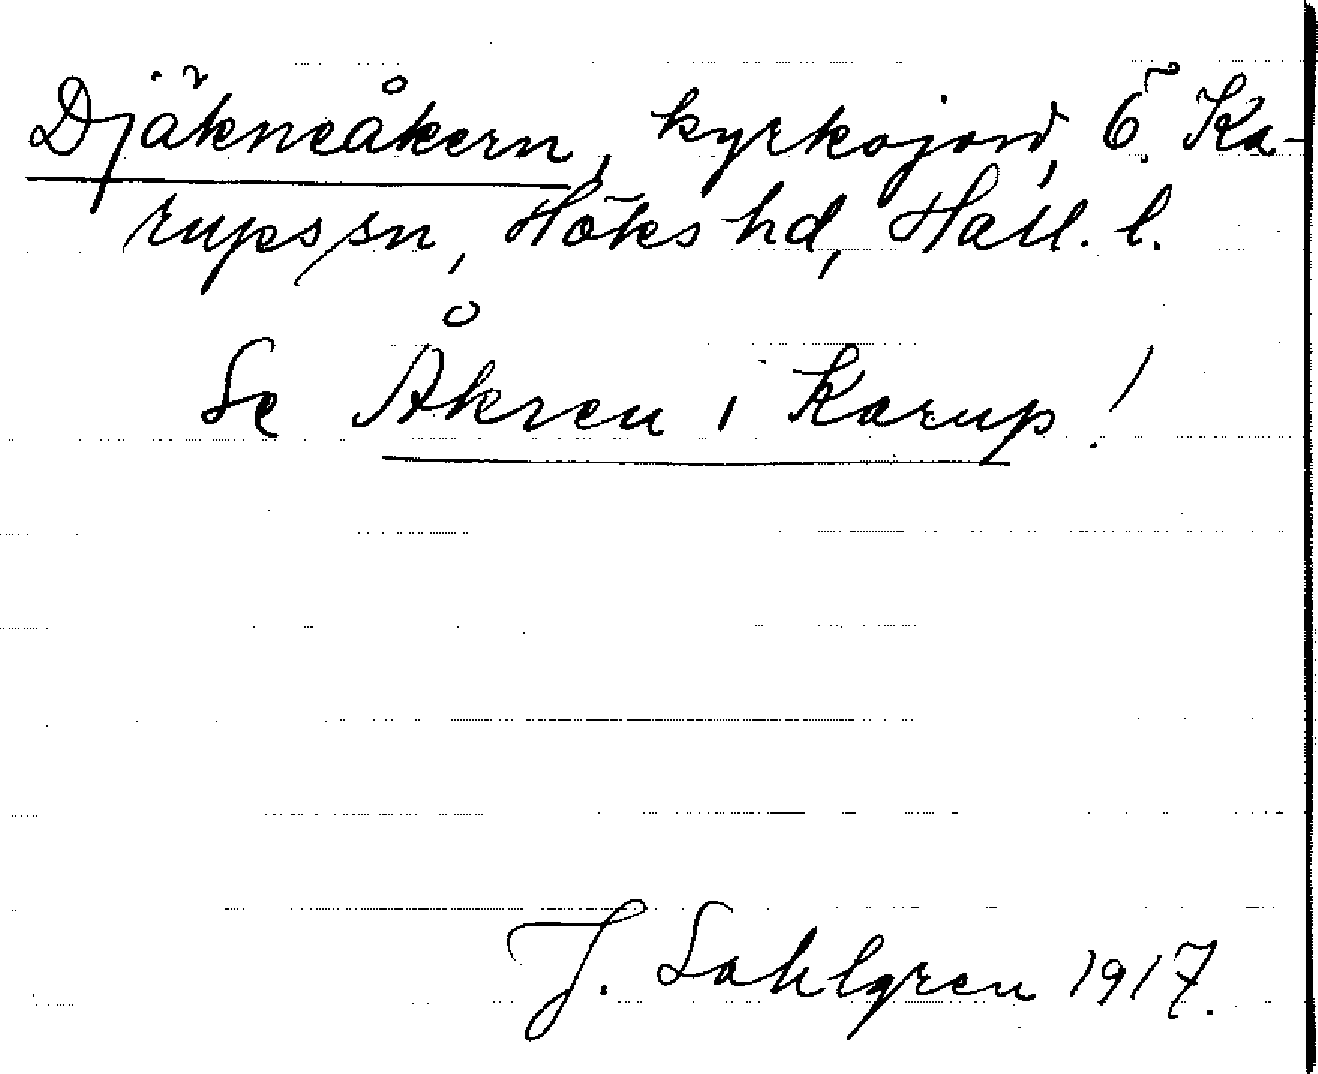 Djäkneåkern, kyrkojord, Ö. Ka-
rups sn, Höks hd, Hall. l.
Se Åkren i Karup!
J. Sahlgren 1917.